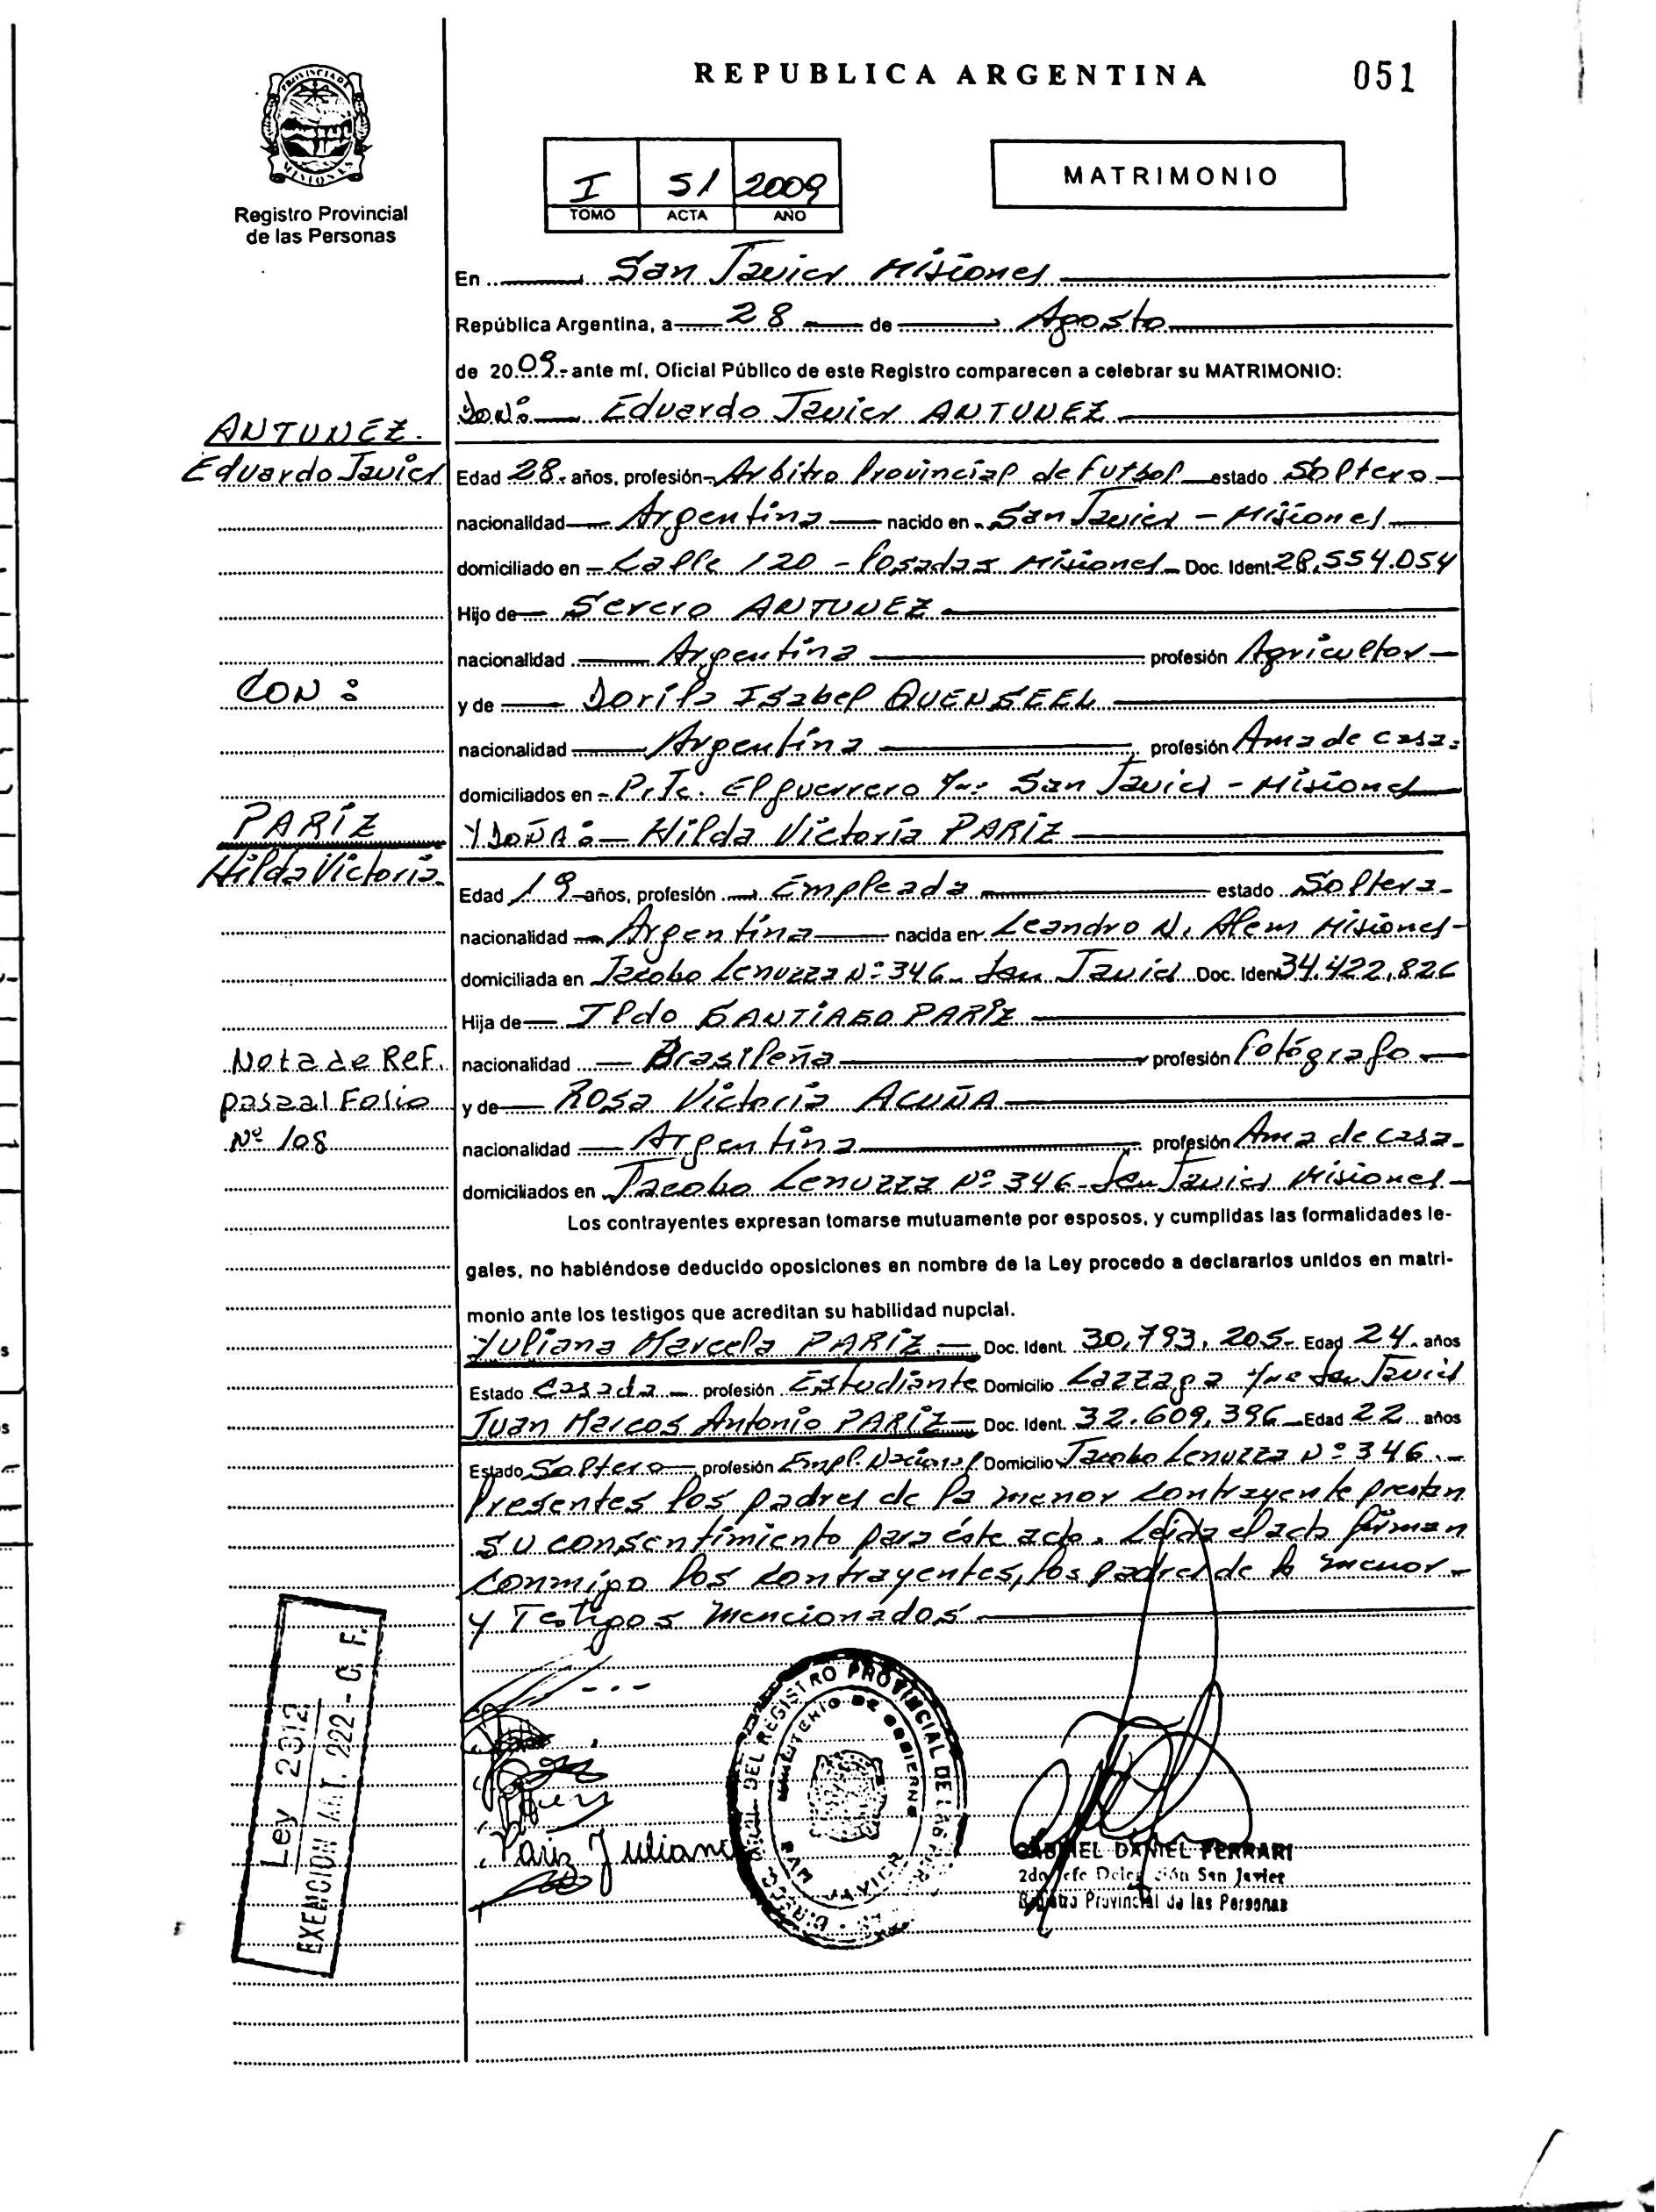 REPUBLICA ARGENTINA
051
PROVINCIA DE
MISIONES
Registro Provincial
de las Personas
I 51 2009
TOMO ACTA AÑO
MATRIMONIO
En San Javier Misiones
República Argentina, a 28 de Agosto
de 2009.- ante mí, Oficial Público de este Registro comparecen a celebrar su MATRIMONIO:
DON: Eduardo Javier ANTUNEZ
ANTUNEZ.
Eduardo Javier
Edad 28 años, profesión Arbitro Provincial de Futbol estado Soltero
nacionalidad Argentina nacido en San Javier - Misiones
domiciliado en Calle 120 - Posadas Misiones Doc. Ident. 28.554.054
Hijo de Severo ANTUNEZ
nacionalidad Argentina profesión Agricultor
CON:
y de Dorila Isabel QUENSEEL
nacionalidad Argentina profesión Ama de casa.
domiciliados en El guerrero San Javier - Misiones
PARÍZ
Hilda Victoria
Y DOÑA: Hilda Victoria PARÍZ
Edad 19 años, profesión Empleada estado Soltera
nacionalidad Argentina nacida en Leandro N. Alem Misiones
domiciliada en Jacobo Lenuzza Nº 346 San Javier Doc. Ident. 34.422.826
Hija de Ildo SANTIAGO PARÍZ
Nota de Ref.
pasa al Folio
Nº 108
nacionalidad Brasileña profesión Fotógrafo
y de Rosa Victoria ACUÑA
nacionalidad Argentina profesión Ama de casa
domiciliados en Jacobo Lenuzza Nº 346 San Javier Misiones
Los contrayentes expresan tomarse mutuamente por esposos, y cumplidas las formalidades le-
gales, no habiéndose deducido oposiciones en nombre de la Ley procedo a declararlos unidos en matri-
monio ante los testigos que acreditan su habilidad nupcial.
Yuliana Marcela PARÍZ Doc. Ident. 30.793.205 Edad 24 años
Estado Casada profesión Estudiante Domicilio San Javier
Juan Marcos Antonio PARÍZ Doc. Ident. 32.609.396 Edad 22 años
Estado Soltero profesión Empl. Nacional Domicilio Jacobo Lenuzza Nº 346.
Presentes los padres de la menor contrayente prestan
su consentimiento para éste acto. Leída el acta firman
conmigo los contrayentes, los padres de la menor
y Testigos mencionados
Ley 2012
EXENCION ART. 222 - C. F.
Pariz Juliana
DEL REGISTRO PROVINCIAL DE LAS
MINISTERIO DE GOBIERNO
SAN JAVIER
GABRIEL DANIEL FERRARI
2do Jefe Delegación San Javier
Registro Provincial de las Personas